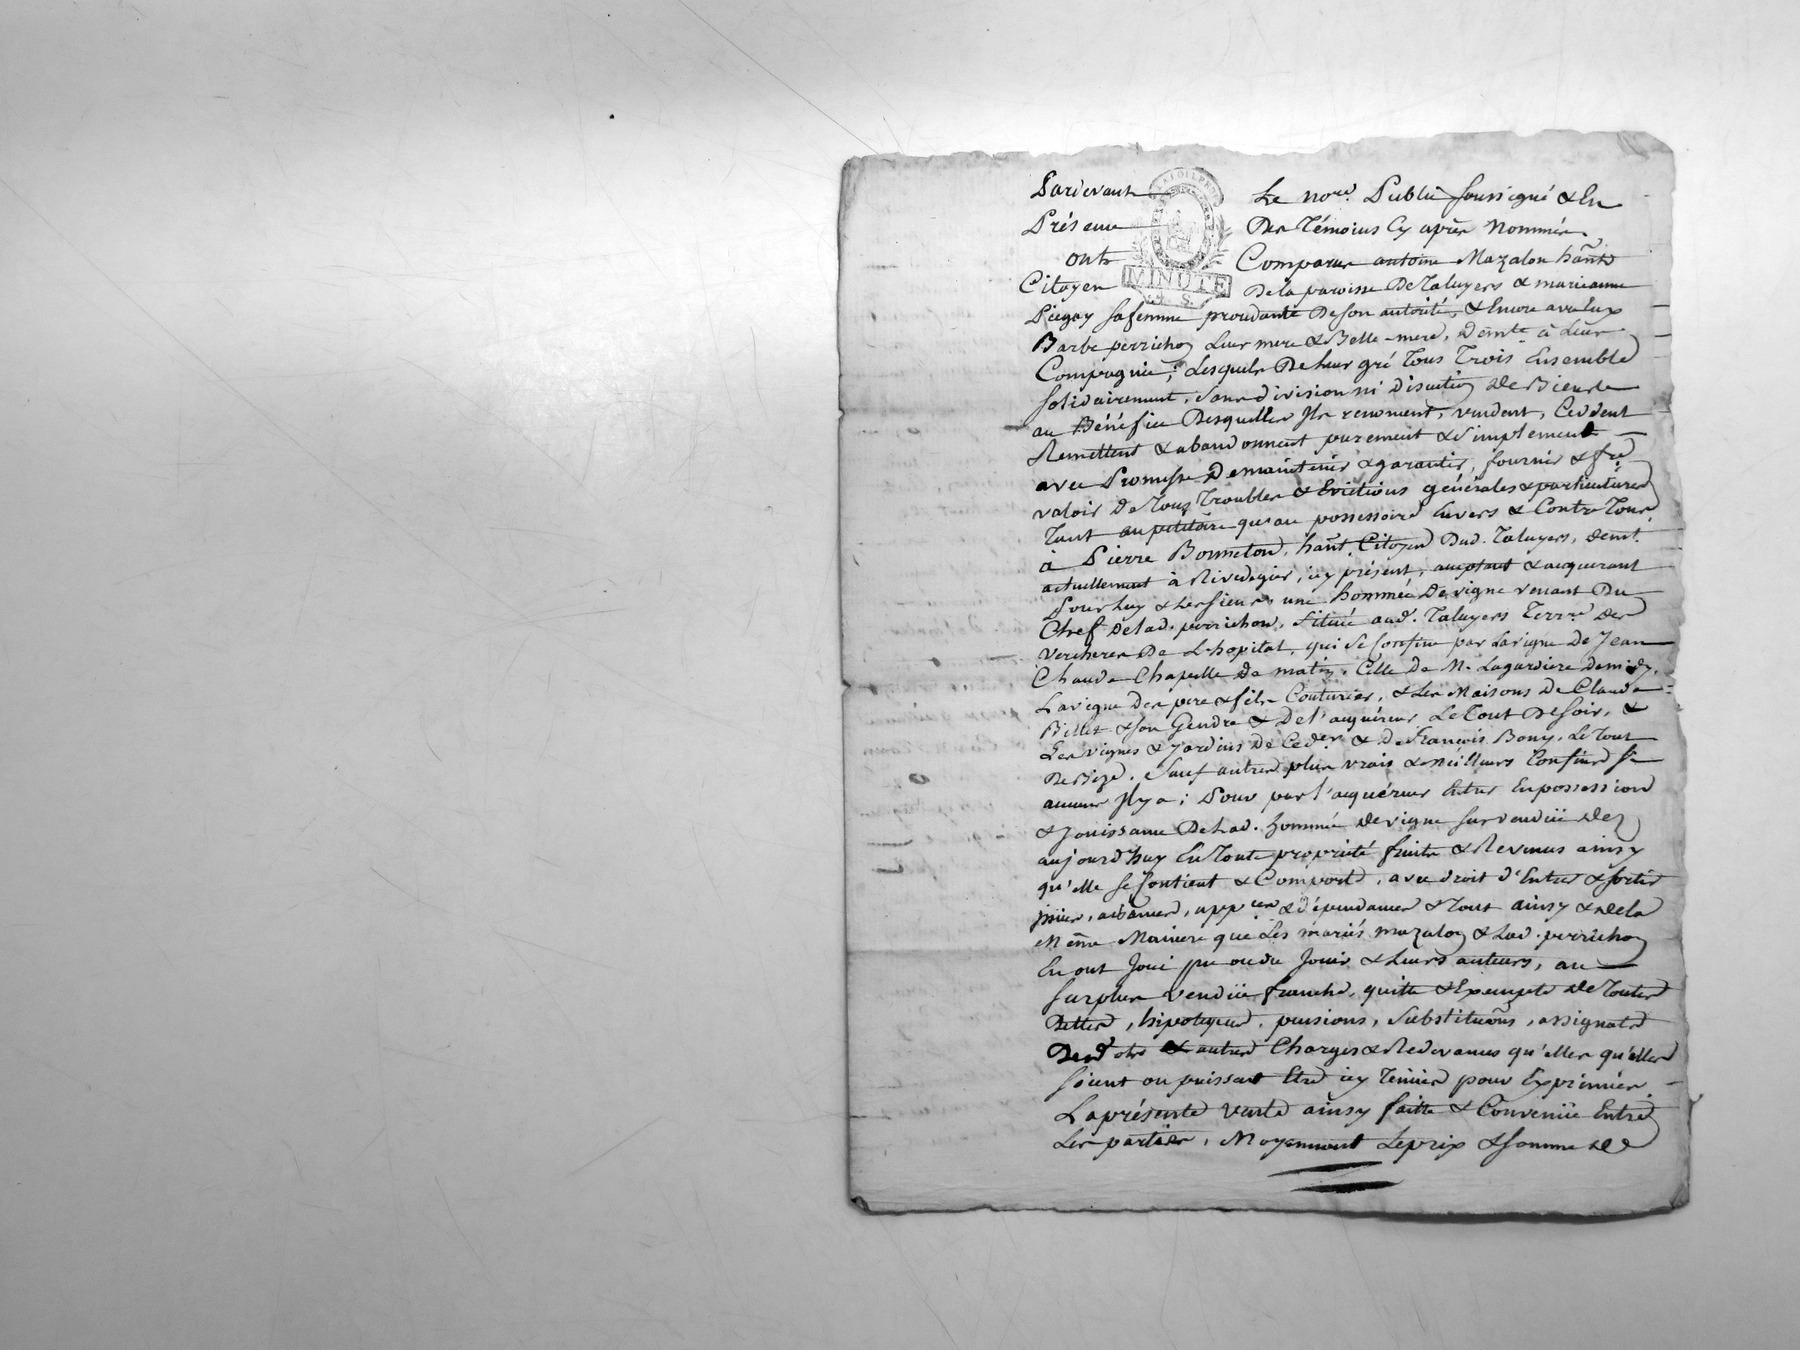 Pardevant Le nore. Public soussigné & En
Présence Des Témoins Cy après Nommés,
ont Comparus antoine Mazalon hant
Citoyen De la paroisse De Taluyers & marieanne
MINUTE
Piegay sa femme procédante De son autorité, & Encore avec Eux
Barbe perrichon Leur mere & Belle-mere, Demte à Leur
Compagnie; Lesquels De Leur gré Tous Trois Ensemble
solidairement, sans division ni Discution de Biens
au Bénéfice Desquelles Ils renoncent, vendent, Ceddent
Remettent & abandonnent purement & simplement
avec Promesse De maintenir & garantir, fournir & fre
valoir De Tous Troubles & Evictions générales & particulieres
Tant au petitoire qu'au possessoire Envers & Contre Tous
à Pierre Bonneton, hant. Citoyen Dud. Taluyers, demt.
actuellement à Rivedegier, icy présent, acceptant & acquerant
Pour Luy & Les siens, une hommée De vigne venant Du
Chef De lad. perrichon, située aud. Taluyers Terre. des
vercheres De L'hopital, qui se Confine par La vigne De Jean
Claude Chapelle De matin, Celle De M. Lagardiere De midy,
La vigne Des pere & fils Couturier, & Les Maisons De Claude
Billet & son Gendre & De l'acquéreur Le Tout De soir, &
Les vignes & Jardins De Ceder. & De François Bony, Le Tout
De Bize. Sauf autres plus vrais & meilleurs Confins si
aucuns Il y a; Pour par l'acquéreur Entrer En possession
& Jouissance De Lad. hommée de vigne sus vendüe dez
aujourd'huy En Toute propriété fruits & Revenus ainsy
qu'elle se Contient & Comporte, avec droit d'Entrer & sortir
issues, aisances, appces & dépendances & Tout ainsy & de la
même Maniere que Les mariés mazalon & Lad. perrichon
En ont Joui pu ou du Jouir & Leurs auteurs, au
surplus vendüe franche, quitte & Exempte de Toutes
Dettes, hipoteques, pensions, substituons, assignats
& autres Charges & Redevances qu'elles qu'elles
soient ou puissent Etre icy Tenües pour Exprimées
La présente vente ainsy faitte & Convenüe Entre
Les parties, Moyennant Le prix & somme de